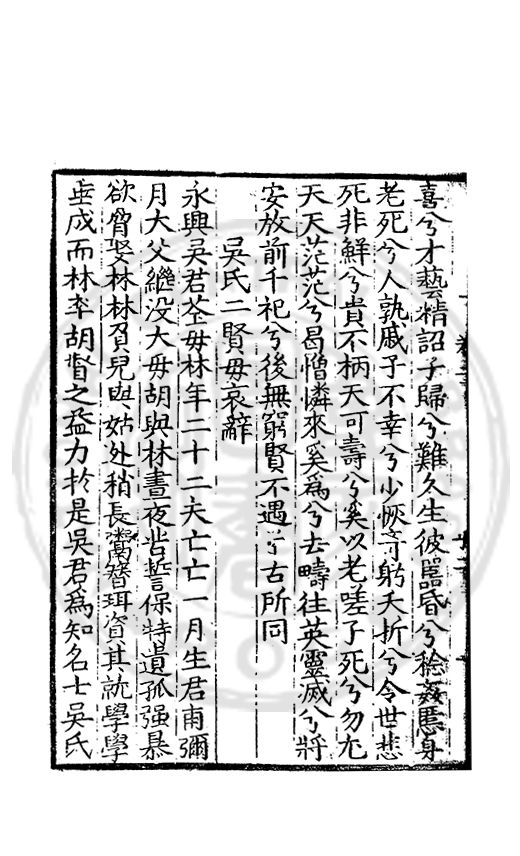 喜兮才藝精詔子歸兮難久生彼嚚昏兮稔姦慝身
老死兮人孰戚子不幸兮少恢奇躬夭折兮令世悲
死非鮮兮貴不柄天可壽兮奚以老嗟子死兮勿尤
天天茫茫兮曷憎憐來奚為兮去疇往英靈滅兮將
安放前千祀兮後無窮賢不遇兮古所同
吳氏二賢毋哀辭
永興吳君荃毋林年二十二夫亡亡一月生君甫彌
月大父繼没大毋胡與林晝夜呰誓保特遺孤强暴
欲脅娶林林負兒與姑处稍長鬻簪珥資其就學學
垂成而林卒胡督之益力扵是吳君為知名士吳氏